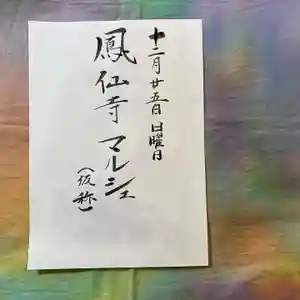 十二月廿五日日曜日
鳳仙寺マルシェ
(仮称)